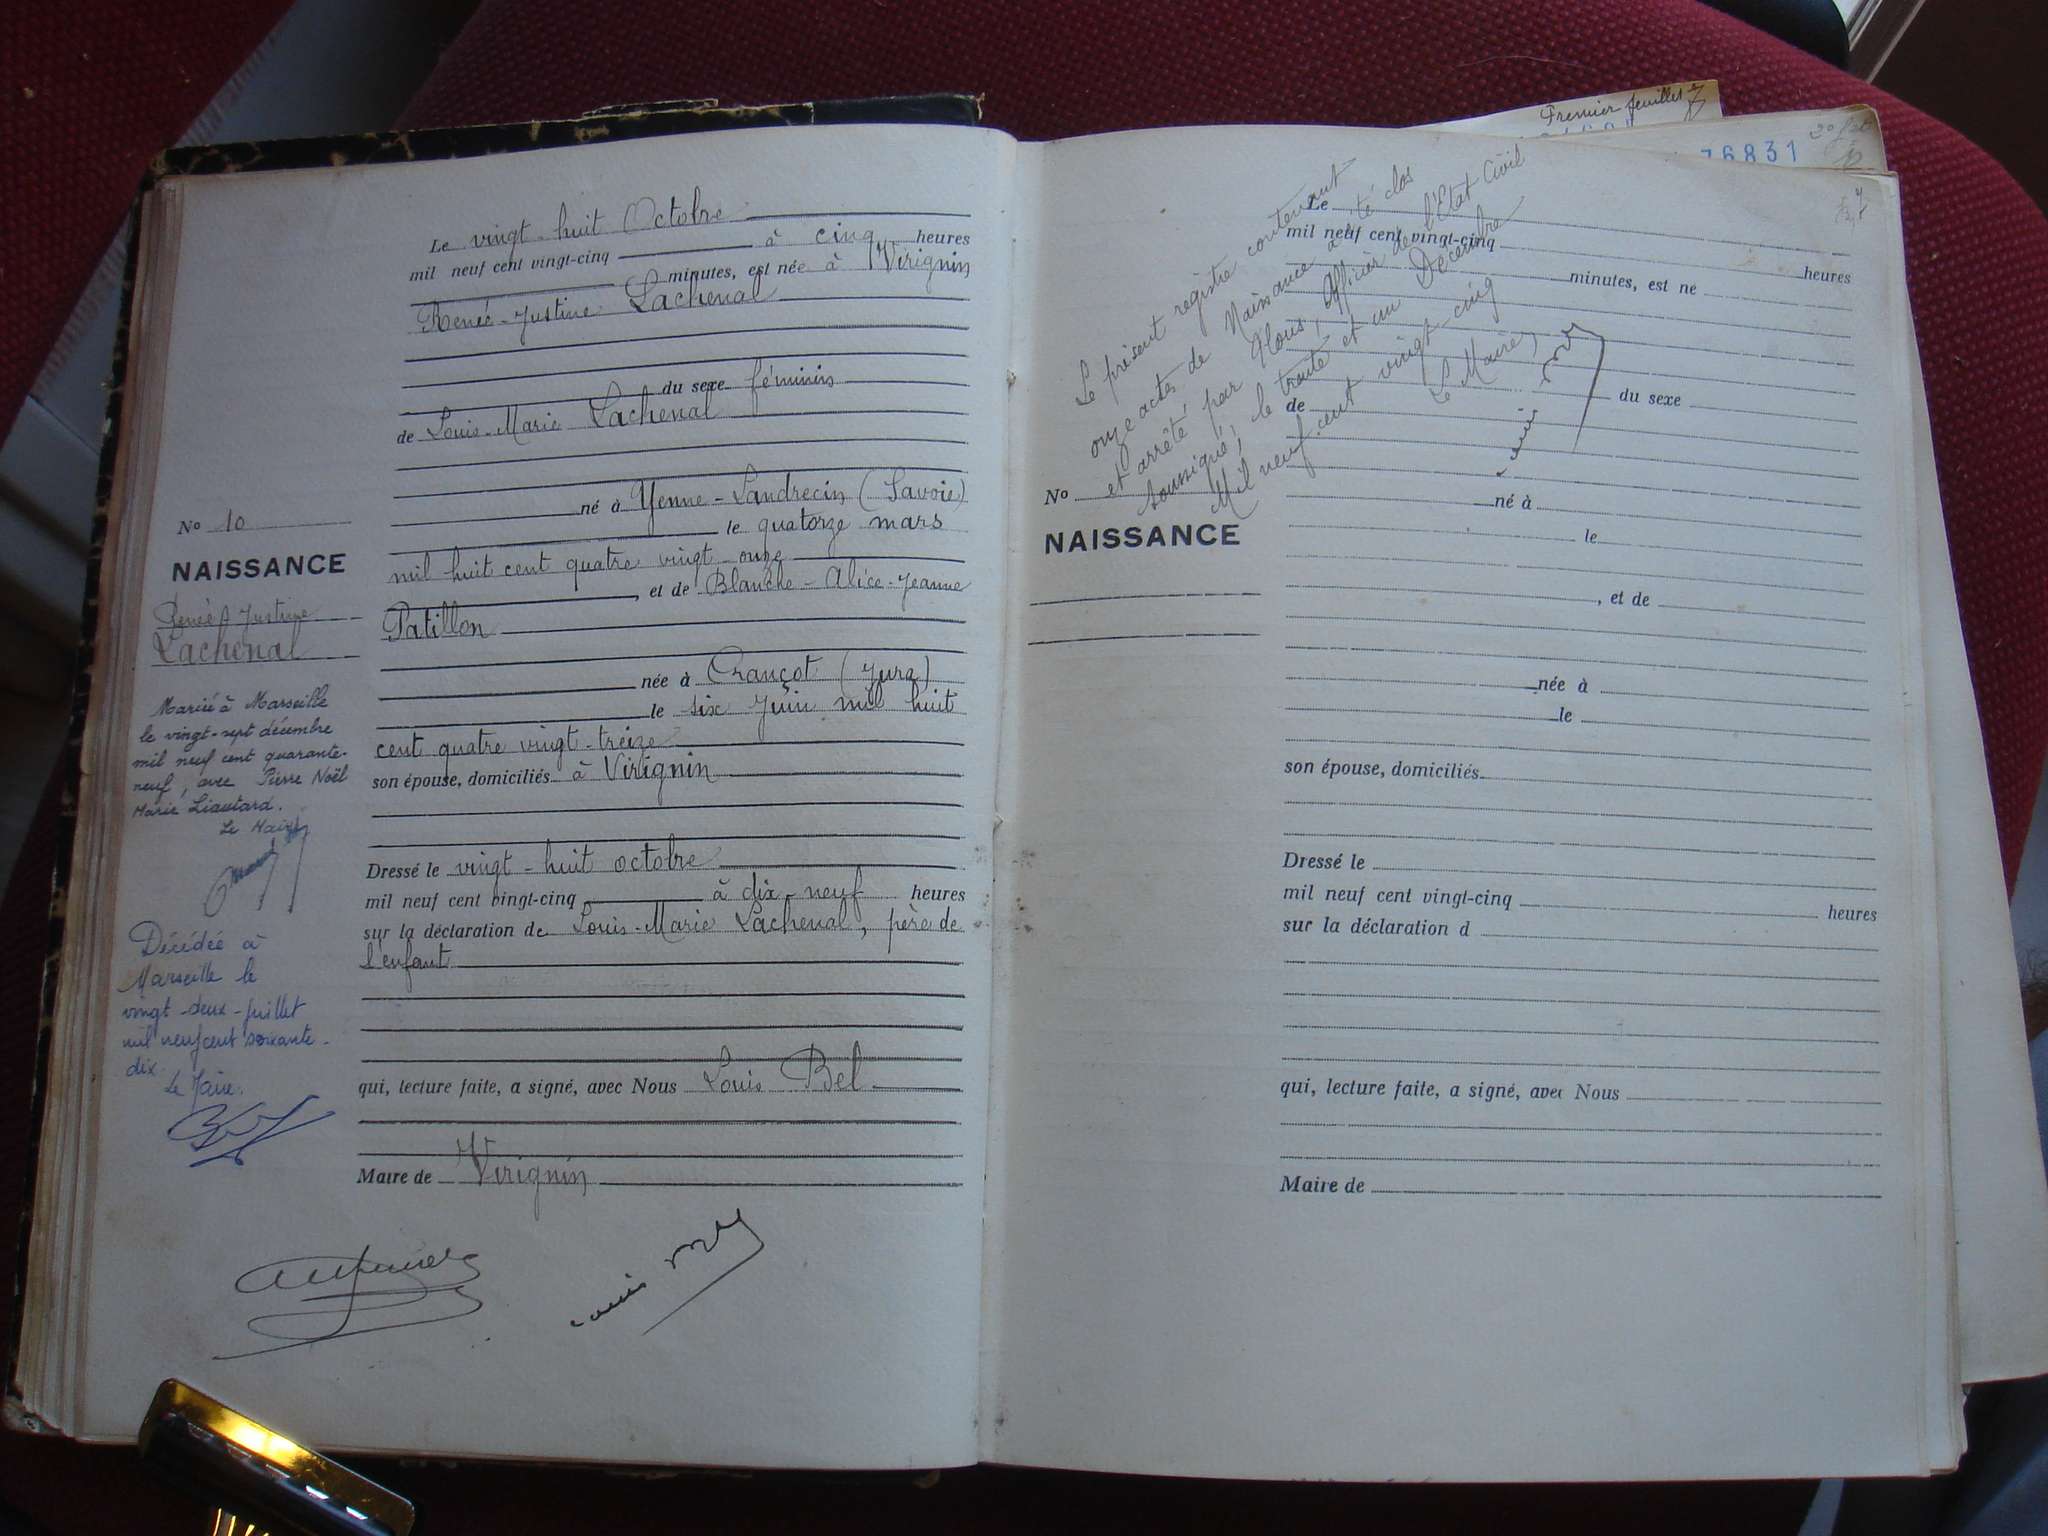 Le vingt-huit Octobre
mil neuf cent vingt-cinq à cinq heures
minutes, est née à Virignin
Renée-Justine Lachenal
du sexe féminin
de Louis-Marie Lachenal
né à Yenne-Landrecin (Savoie)
le quatorze mars
mil huit cent quatre vingt-onze
, et de Blanche-Alice-Jeanne
Patillon
née à Crançot (Jura)
le six Juin mil huit
cent quatre vingt-treize
son épouse, domiciliés à Virignin
Dressé le vingt-huit octobre
mil neuf cent vingt-cinq à dix-neuf heures
sur la déclaration de Louis-Marie Lachenal, père de
l'enfant
qui, lecture faite, a signé, avec Nous Louis Bel
Maire de Virignin
No 10
NAISSANCE
Renée Justine
Lachenal
Mariée à Marseille
le vingt-sept décembre
mil neuf cent quarante-
neuf, avec Pierre Noël
Marie Liautard.
Le Maire
Décédée à
Marseille le
vingt-deux-juillet
mil neuf cent soixante-
dix.
Le Maire.
Premier feuillet
76831
Le présent registre contenant
onze actes de Naissance a été clos
et arrêté par Nous, Officier de l'Etat Civil
soussigné, le trente et un Décembre
Mil neuf cent vingt-cinq
Le Maire,
No
NAISSANCE
Le
mil neuf cent vingt-cinq
heures
minutes, est ne
du sexe
de
né à
le
, et de
née à
le
son épouse, domiciliés
Dressé le
mil neuf cent vingt-cinq
heures
sur la déclaration d
qui, lecture faite, a signé, avec Nous
Maire de